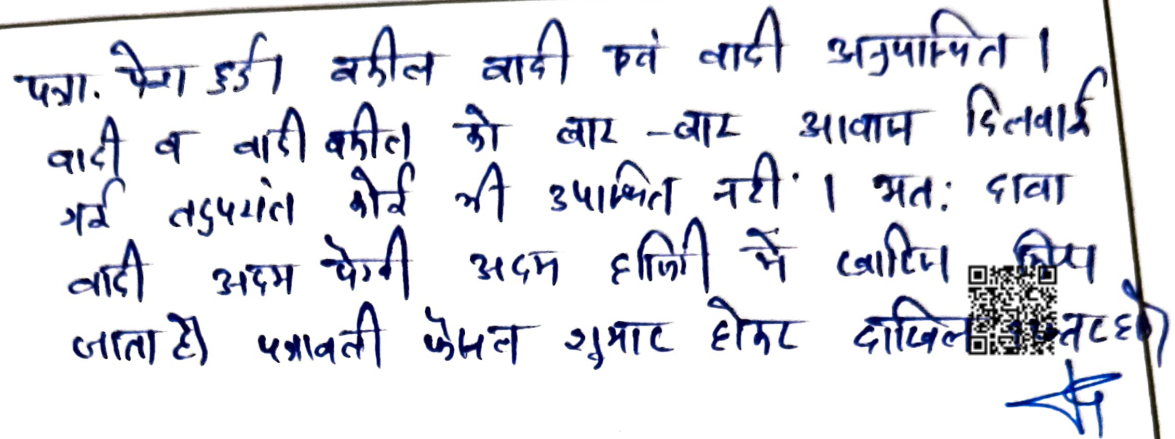 पत्रा. पेश हुई। वकील वादी एवं वादी अनुपस्थित।
वादी व वादी वकील को बार-बार आवाज दिलवाई
गई तदुपरांत कोई भी उपस्थित नहीं। अत: दावा
वादी अदम पेरवी अदम हाजिरी में खारिज किया
जाता है। पत्रावली फैसल शुमार होकर दाखिल